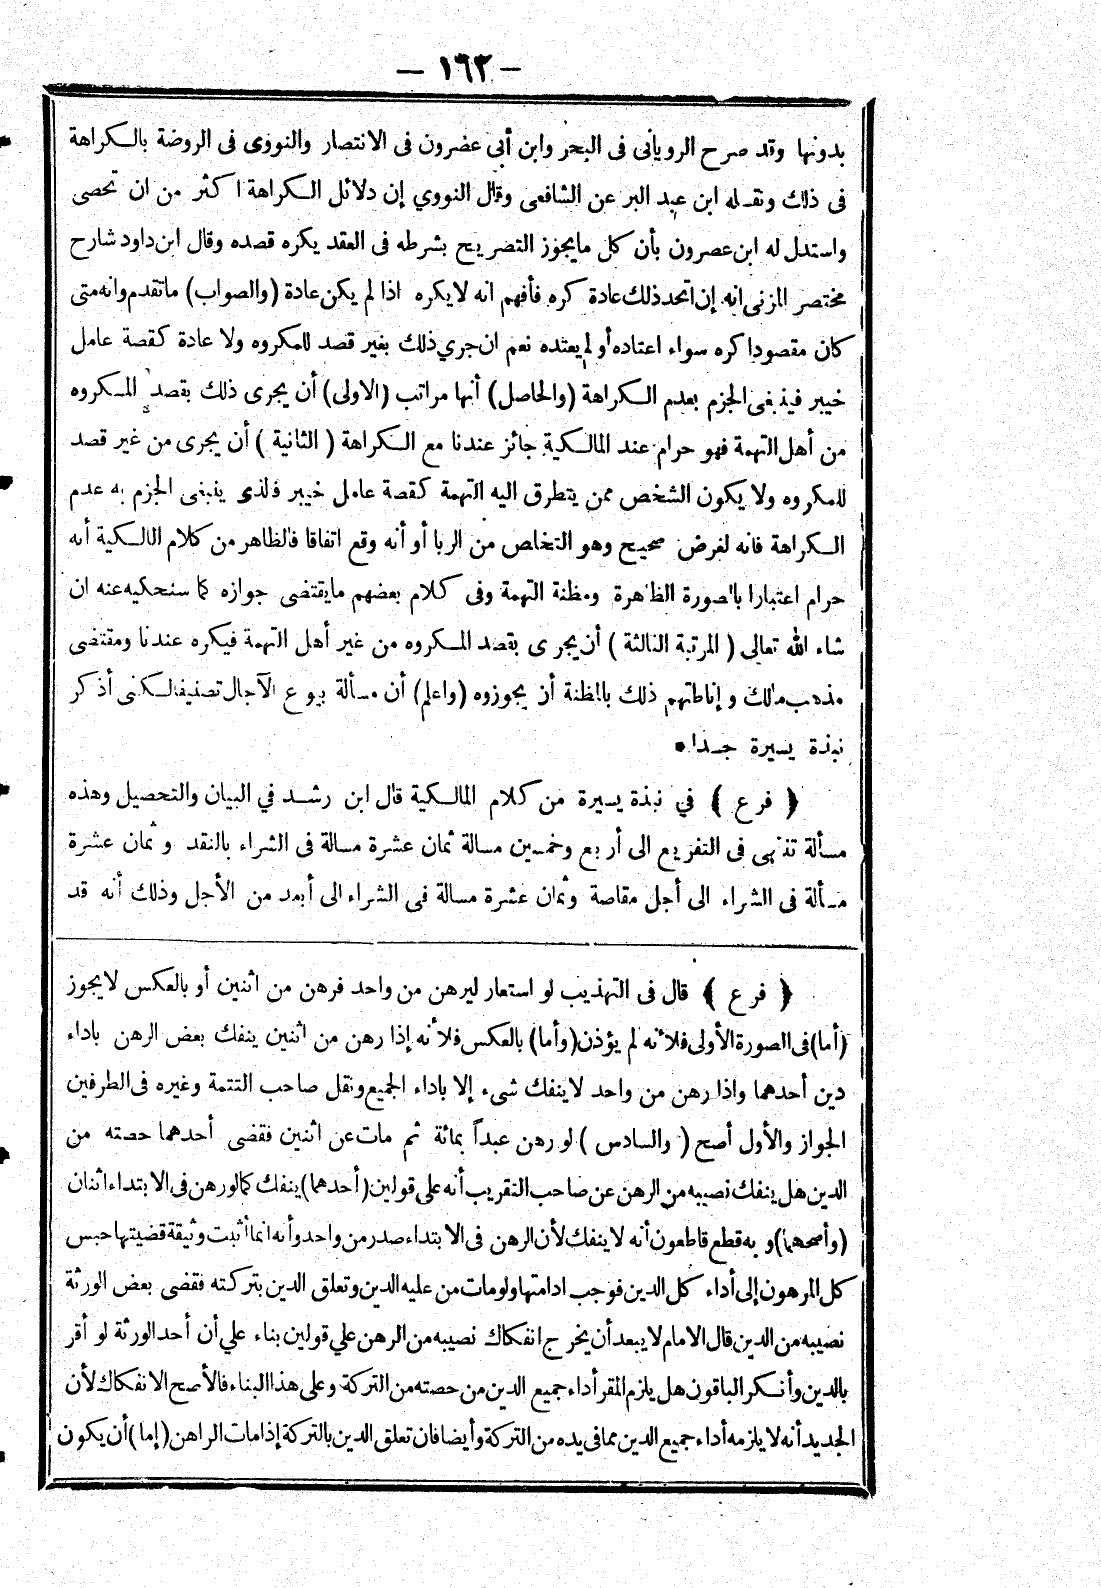 — ١٦٣ —
بدونها وقد صرح الرويانى فى البحر وابن أبي عضرون فى الانتصار والنووى فى الروضة بالكراهة
فى ذلك ونقله ابن عبد البر عن الشافعى وقال النووي إن دلائل الكراهة اكثر من ان تحصى
واستدل له ابن عصرون بأن كل مايجوز التصريح بشرطه فى العقد يكره قصده وقال ابن داود شارح
مختصر المزنى انه إن اتخذ ذلك عادة كره فأفهم انه لايكره اذا لم يكن عادة (والصواب) ماتقدم وانه متى
كان مقصودا كره سواء اعتاده أو لم يعتده نعم ان جري ذلك بغير قصد للمكروه ولا عادة كقصة عامل
خيبر فينبغى الجزم بعدم الكراهة (والحاصل) أنها مراتب (الاولى) أن يجرى ذلك بقصد المكروه
من أهل التهمة فهو حرام عند المالكية جائز عندنا مع الكراهة ( الثانية ) أن يجرى من غير قصد
للمكروه ولا يكون الشخص ممن يتطرق اليه التهمة كقصة عامل خيبر فالذى ينبغى الجزم به عدم
الكراهة فانه لغرض صحيح وهو التخلص من الربا أو أنه وقع اتفاقا فالظاهر من كلام المالكية أنه
حرام اعتبارا بالصورة الظاهرة ومظنة التهمة وفى كلام بعضهم مايقتضى جوازه كما سنحكيه عنه ان
شاء الله تعالى ( المرتبة الثالثة ) أن يجرى بقصد المكروه من غير أهل التهمة فيكره عندنا ومقتضى
مذهب مالك و إناطتهم ذلك بالمظنة أن يجوزوه (واعلم) أن مسألة بيوع الآجال تصنيفا لكنى أذكر
نبذة يسيرة جدا •
﴿ فرع ﴾ في نبذة يسيرة من كلام المالكية قال ابن رشد في البيان والتحصيل وهذه
مسألة تنتهى فى التفريع الى أربع وخمسين مسالة ثمان عشرة مسالة فى الشراء بالنقد وثمان عشرة
مسألة فى الشراء الى أجل مقاصة وثمان عشرة مسالة فى الشراء الى أبعد من الأجل وذلك أنه قد
﴿ فرع ﴾ قال فى التهذيب لو استعار ليرهن من واحد فرهن من اثنين أو بالعكس لايجوز
(أما) فى الصورة الأولى فلأنه لم يؤذن (وأما) بالعكس فلأنه إذا رهن من اثنين ينفك بعض الرهن باداء
دين أحدهما واذا رهن من واحد لا ينفك شىء إلا باداء الجميع ونقل صاحب التتمة وغيره فى الطرفين
الجواز والأول أصح ( والسادس ) لو رهن عبداً بمائة ثم مات عن اثنين فقضى أحدهما حصته من
الدين هل ينفك نصيبه من الرهن عن صاحب التقريب أنه على قولين (أحدهما) ينفك كما لو رهن فى الابتداء اثنان
(وأصحهما) و به قطع قاطعون أنه لا ينفك لأن الرهن فى الابتداء صدر من واحد وأنه انما أثبت وثيقة قضيتها حبس
كل المرهون إلى أداء كل الدين فوجب ادامتها ولو مات من عليه الدين وتعلق الدين بتركته فقضى بعض الورثة
نصيبه من الدين قال الامام لا يبعد أن يخرج انفكاك نصيبه من الرهن علي قولين بناء علي أن أحد الورثة لو أقر
بالدين وأنكر الباقون هل يلزم المقر أداء جميع الدين من حصته من التركة وعلى هذا البناء فالأصح الانفكاك لأن
الجديد أنه لا يلزمه أداء جميع الدين مما فى يده من التركة وأيضا فان تعلق الدين بالتركة إذا مات الراهن (إما) أن يكون